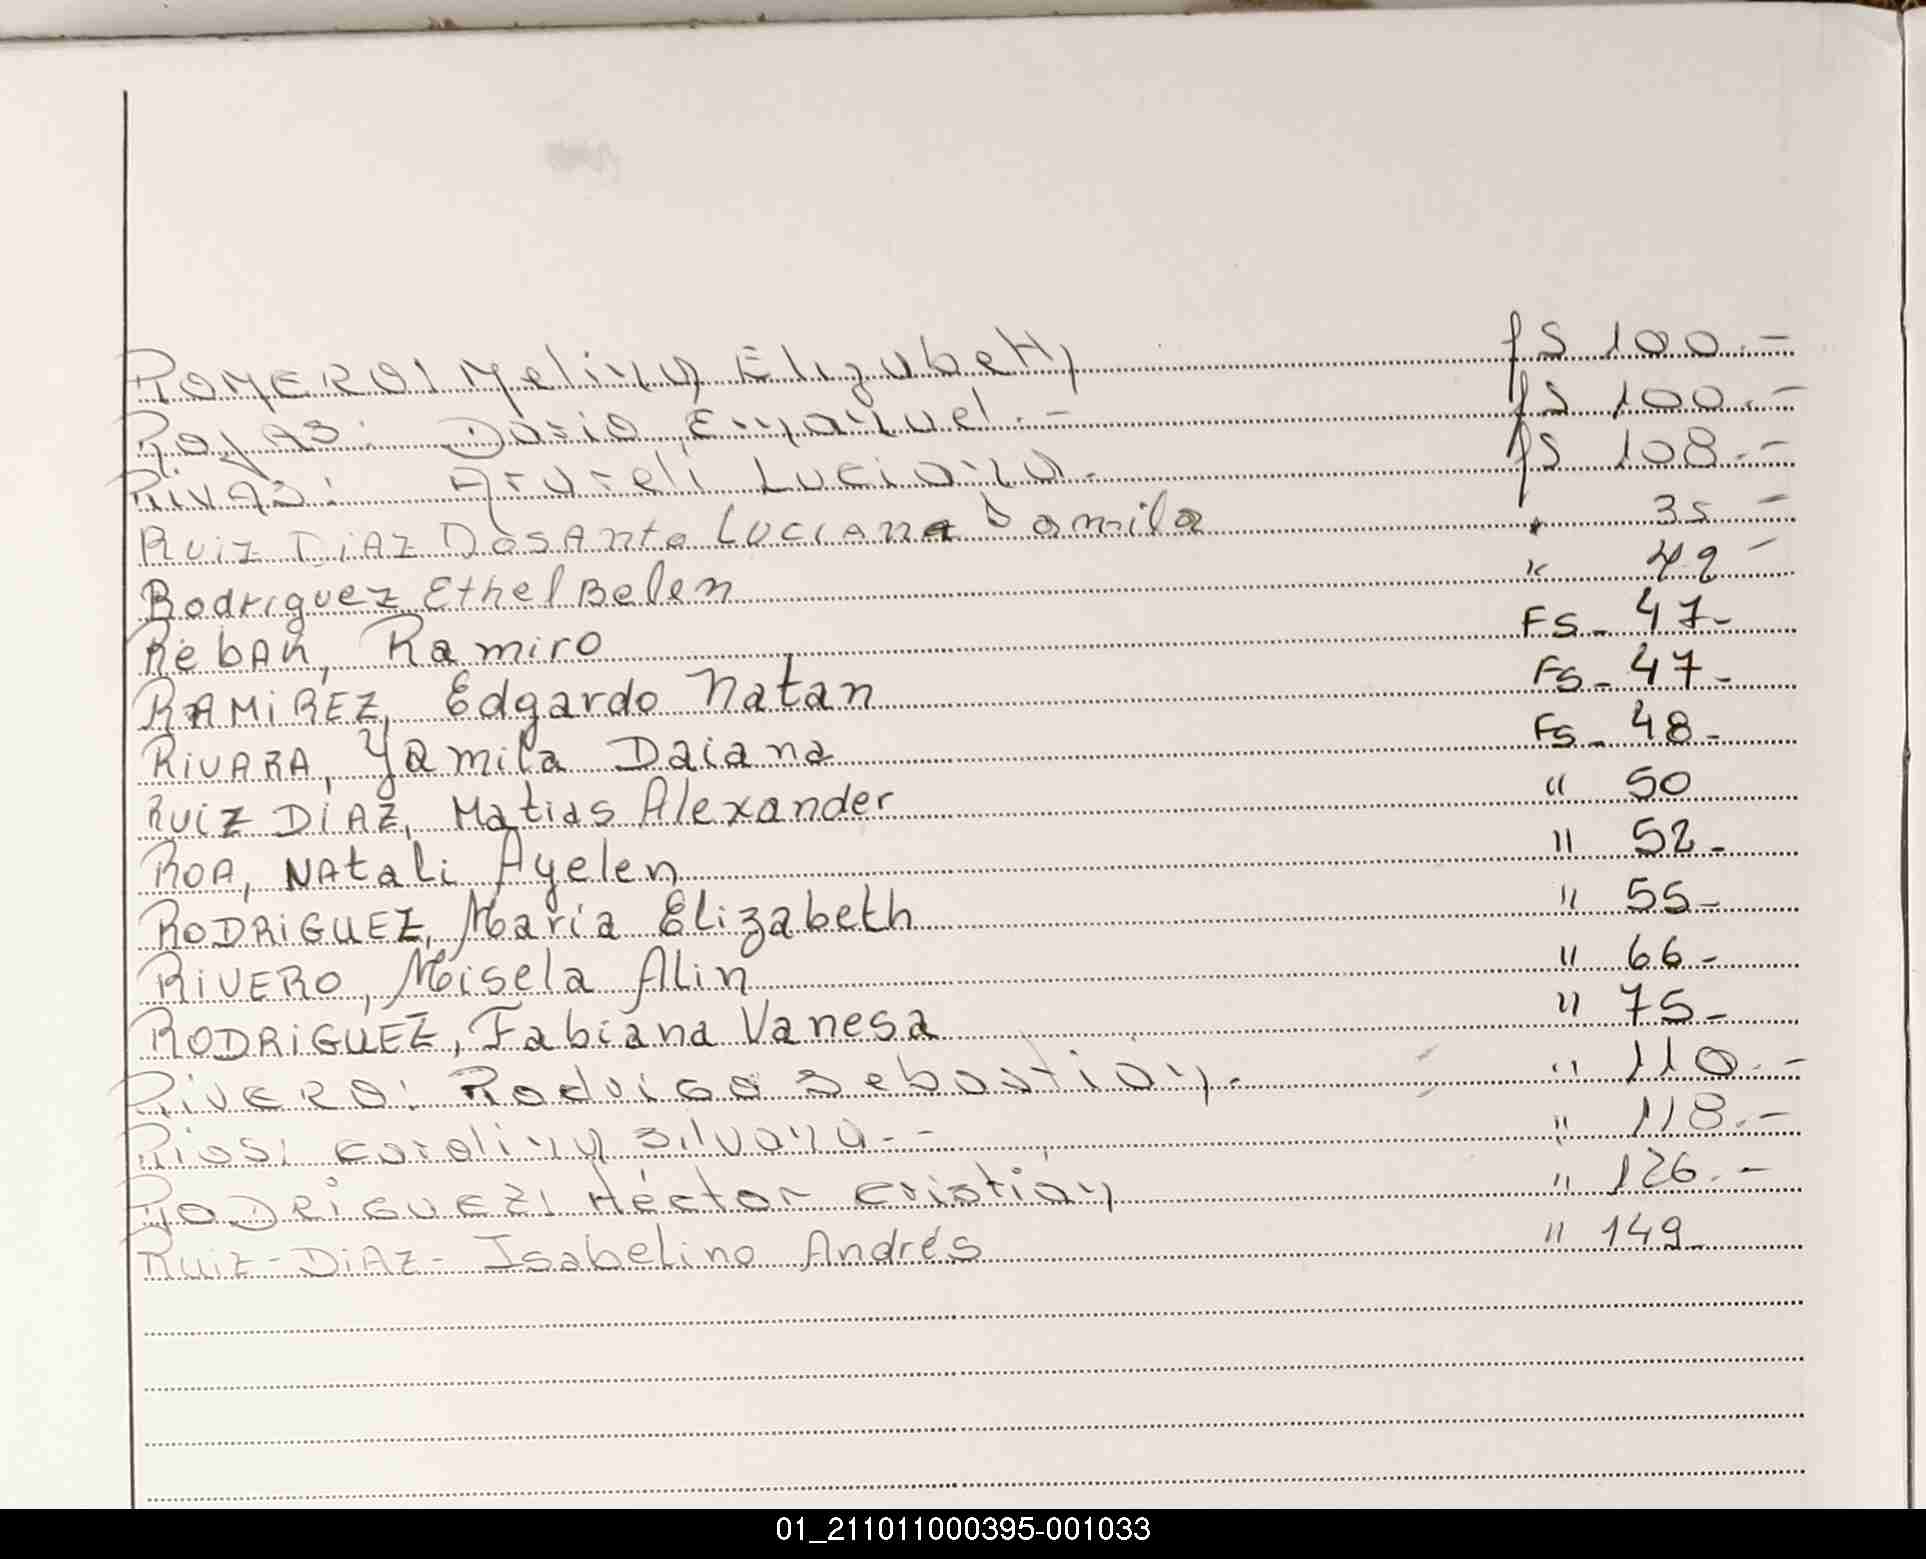 ROMERO: Melina Elizabeth fs 100.-
Rojas: Dario Emanuel.- fs 100.-
Rivas: Araceli Luciana. fs 108.-
Ruiz DiAZ DosAnto Luciana Damila " 35 -
Rodriguez Ethel Belen " 42 -
RebAK, Ramiro FS- 47-
RAMiREZ, Edgardo Natan Fs- 47-
RiVARA, Yamila Daiana Fs- 48-
Ruiz DiAZ, Matias Alexander " 50
ROA, NAtali Ayelen " 52-
RODRiGUEZ, Maria Elizabeth " 55-
RiVERO, Meisela Alin " 66-
RODRiGUEZ, Fabiana Vanesa " 75-
RiVERO: Rodrigo Sebastian.- " 110.-
Rios: Carolina Silvana.- " 118.-
RODRiGUEZ: Héctor Cristián " 126.-
Ruiz-DiAZ- Isabelino Andrés " 149-
01_211011000395-001033